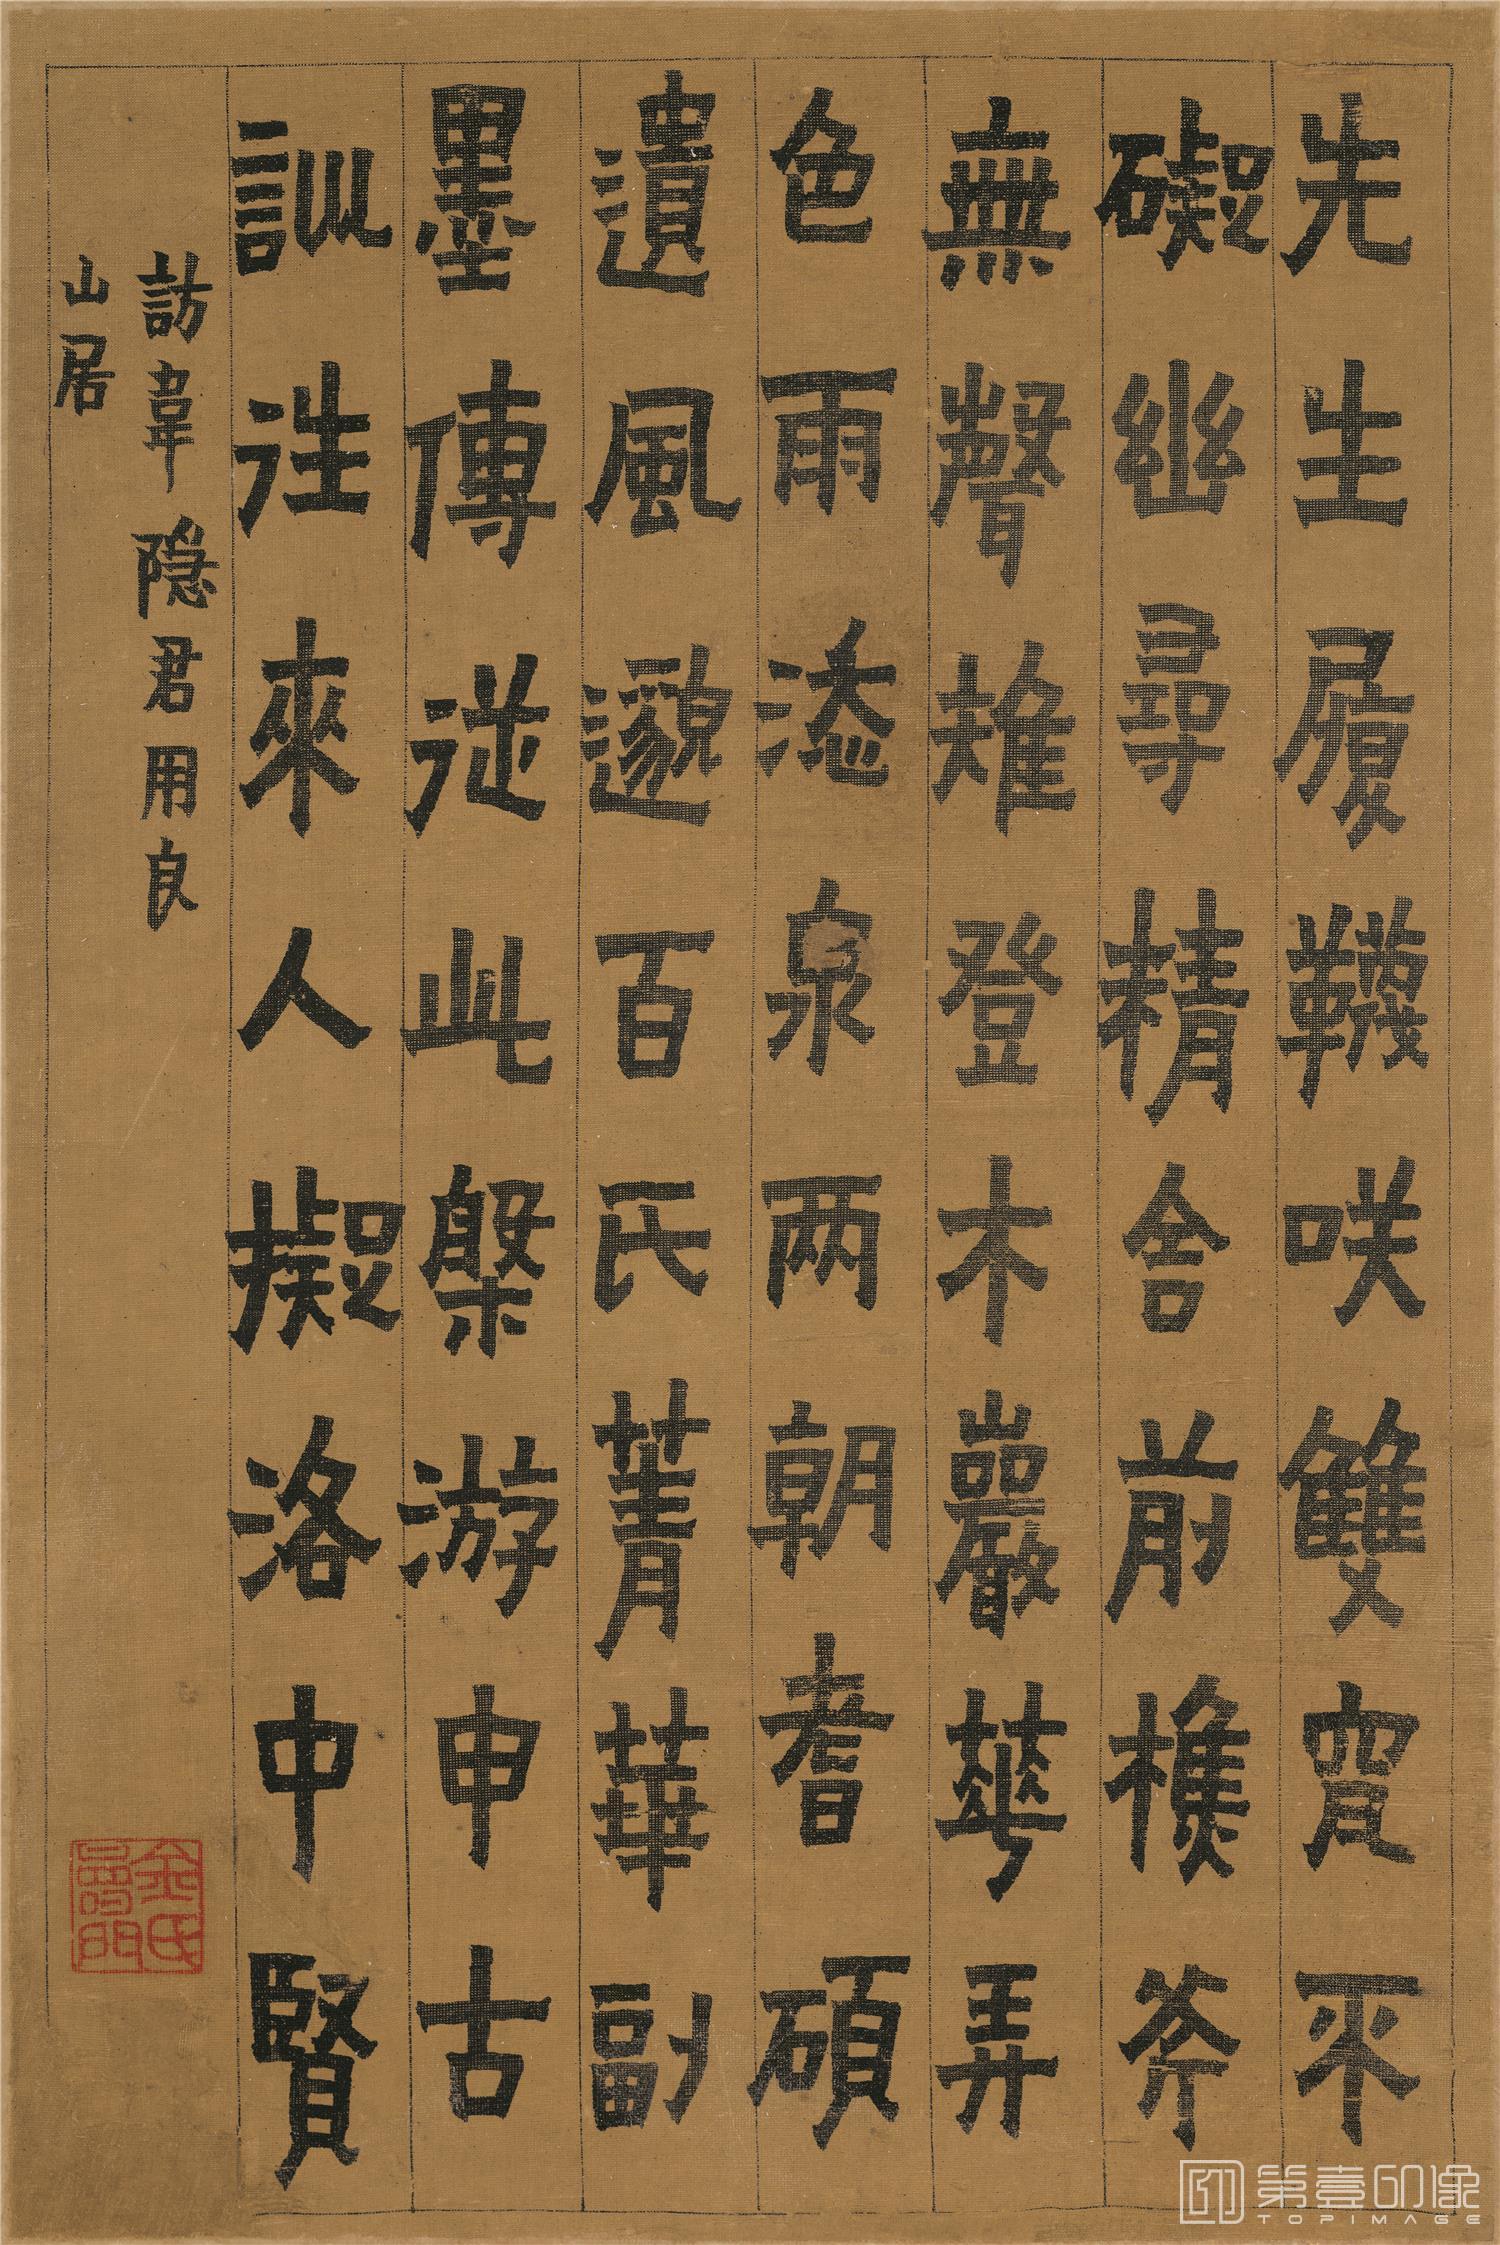 先生履韈咲雙穿不
礙幽尋精舍前樵斧
無聲雉登木巖華弄
色雨添泉两朝耆碩
遺風邈百氏菁華副
墨傳從此槃游申古
訓往來人擬洛中賢
訪韋隐君用良
山居
金氏壽門
第壹印像
TOPIMAGE